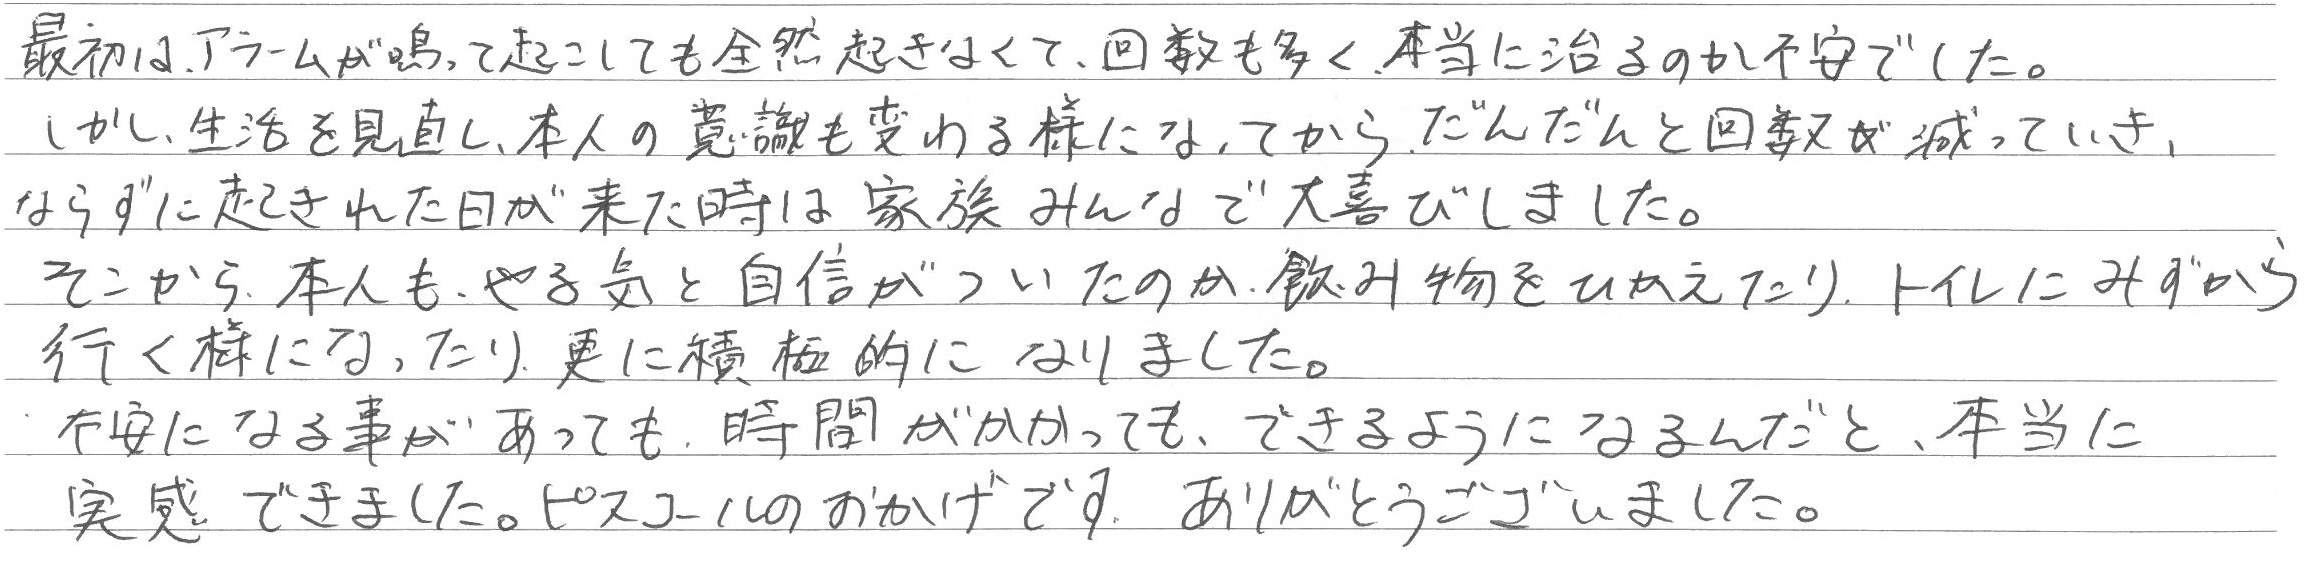 最初は、アラームが鳴って起こしても全然起きなくて、回数も多く、本当に治るのか不安でした。
しかし、生活を見直し、本人の意識も変わる様になってから、だんだんと回数が減っていき、
ならずに起きれた日が来た時は家族みんなで大喜びしました。
そこから、本人も、やる気と自信がついたのか、飲み物をひかえたり、トイレにみずから
行く様になったり、更に積極的になりました。
不安になる事があっても、時間がかかっても、できるようになるんだと、本当に
実感できました。ピスコールのおかげです。ありがとうございました。